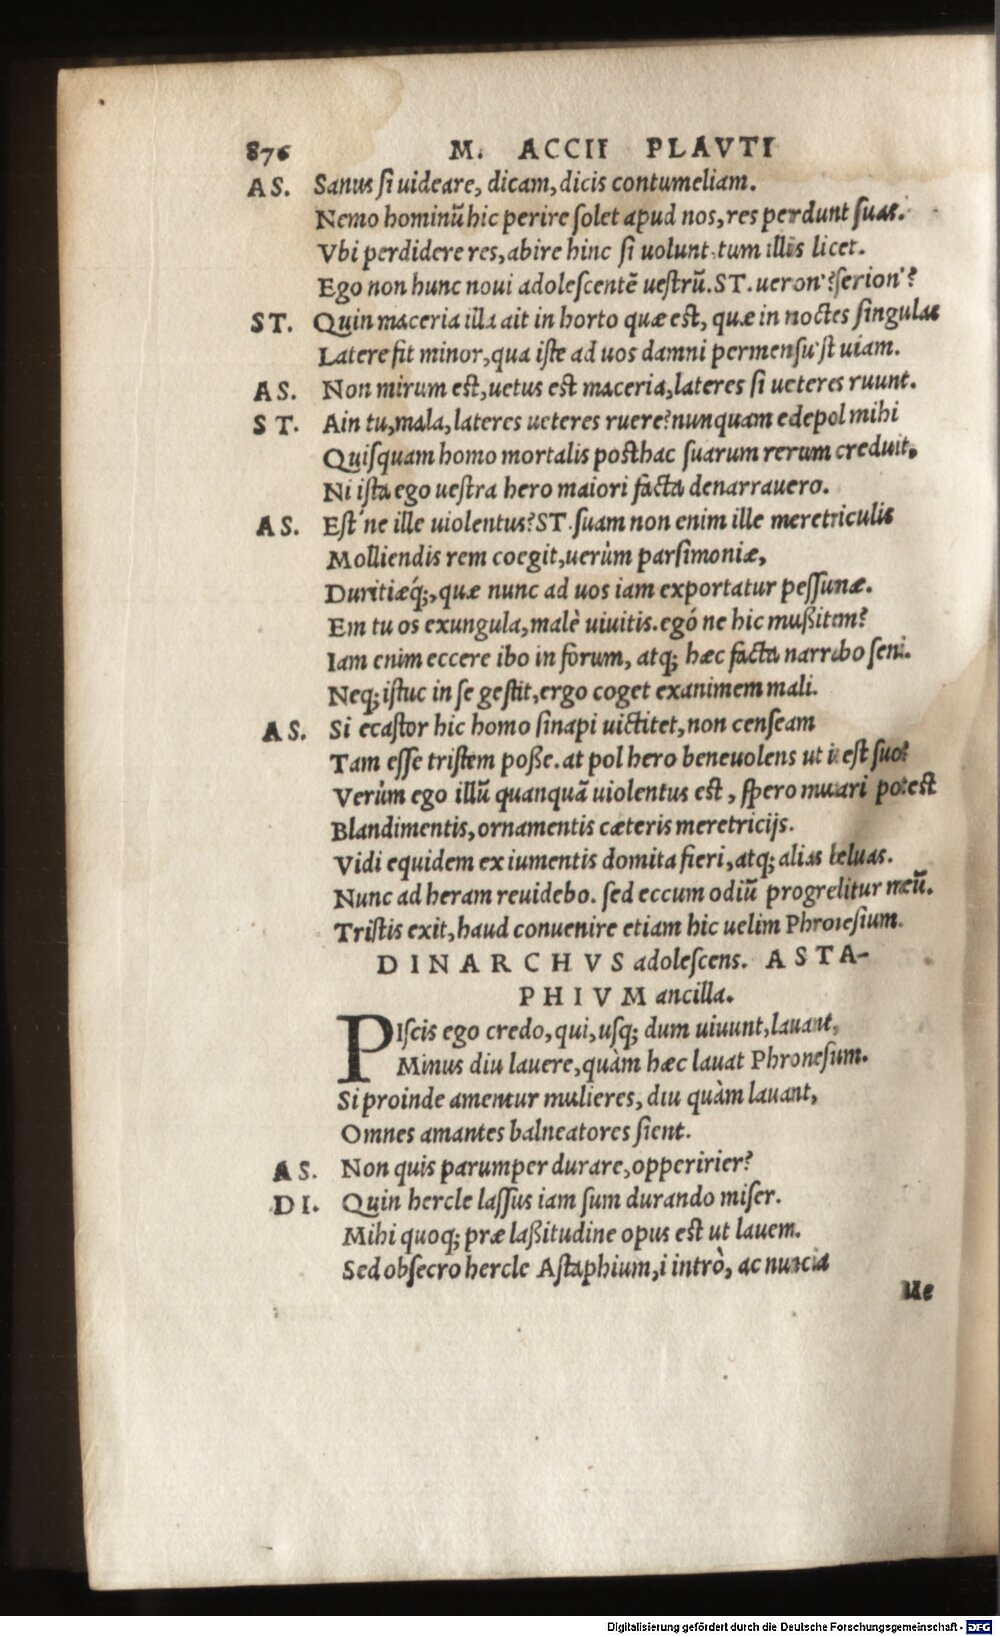 876 M. ACCII PLAVTI
AS. Sanus si uideare, dicam, dicis contumeliam.
Nemo hominũ hic perire solet apud nos, res perdunt suas.
Vbi perdidere res, abire hinc si uolunt, tum illis licet.
Ego non hunc noui adolescentẽ uestrũ. ST. ueron'? serion'?
ST. Quin maceria illa ait in horto quæ est, quæ in noctes singulas
Latere fit minor, qua iste ad uos damni permensu'st uiam.
AS. Non mirum est, uetus est maceria, lateres si ueteres ruunt.
ST. Ain tu, mala, lateres ueteres ruere? nunquam edepol mihi
Quisquam homo mortalis posthac suarum rerum creduit,
Ni ista ego uestra hero maiori facta denarrauero.
AS. Est'ne ille uiolentus? ST. suam non enim ille meretriculis
Molliendis rem coegit, uerùm parsimoniæ,
Duritiæq́;, quæ nunc ad uos iam exportatur pessunæ.
Em tu os exungula, malè uiuitis. egó ne hic mußitem?
Iam enim eccere ibo in forum, atq; hæc facta narrabo seni.
Neq; istuc in se gestit, ergo coget exanimem mali.
AS. Si ecastor hic homo sinapi uictitet, non censeam
Tam esse tristem poße. at pol hero beneuolens ut is est suo?
Verùm ego illũ quanquã uiolentus est, spero mutari potest
Blandimentis, ornamentis cæteris meretricijs.
Vidi equidem ex iumentis domita fieri, atq; alias beluas.
Nunc ad heram reuidebo. sed eccum odiũ progreditur meũ.
Tristis exit, haud conuenire etiam hic uelim Phronesium.
DINARCHVS adolescens. ASTA-
PHIVM ancilla.
PIscis ego credo, qui, usq; dum uiuunt, lauant,
Minus diu lauere, quàm hæc lauat Phronesium.
Si proinde amentur mulieres, diu quàm lauant,
Omnes amantes balneatores sient.
AS. Non quis parumper durare, opperirier?
DI. Quin hercle lassus iam sum durando miser.
Mihi quoq; præ laßitudine opus est ut lauem.
Sed obsecro hercle Astaphium, i intrò, ac nuncia
Me
Digitalisierung gefördert durch die Deutsche Forschungsgemeinschaft - DFG